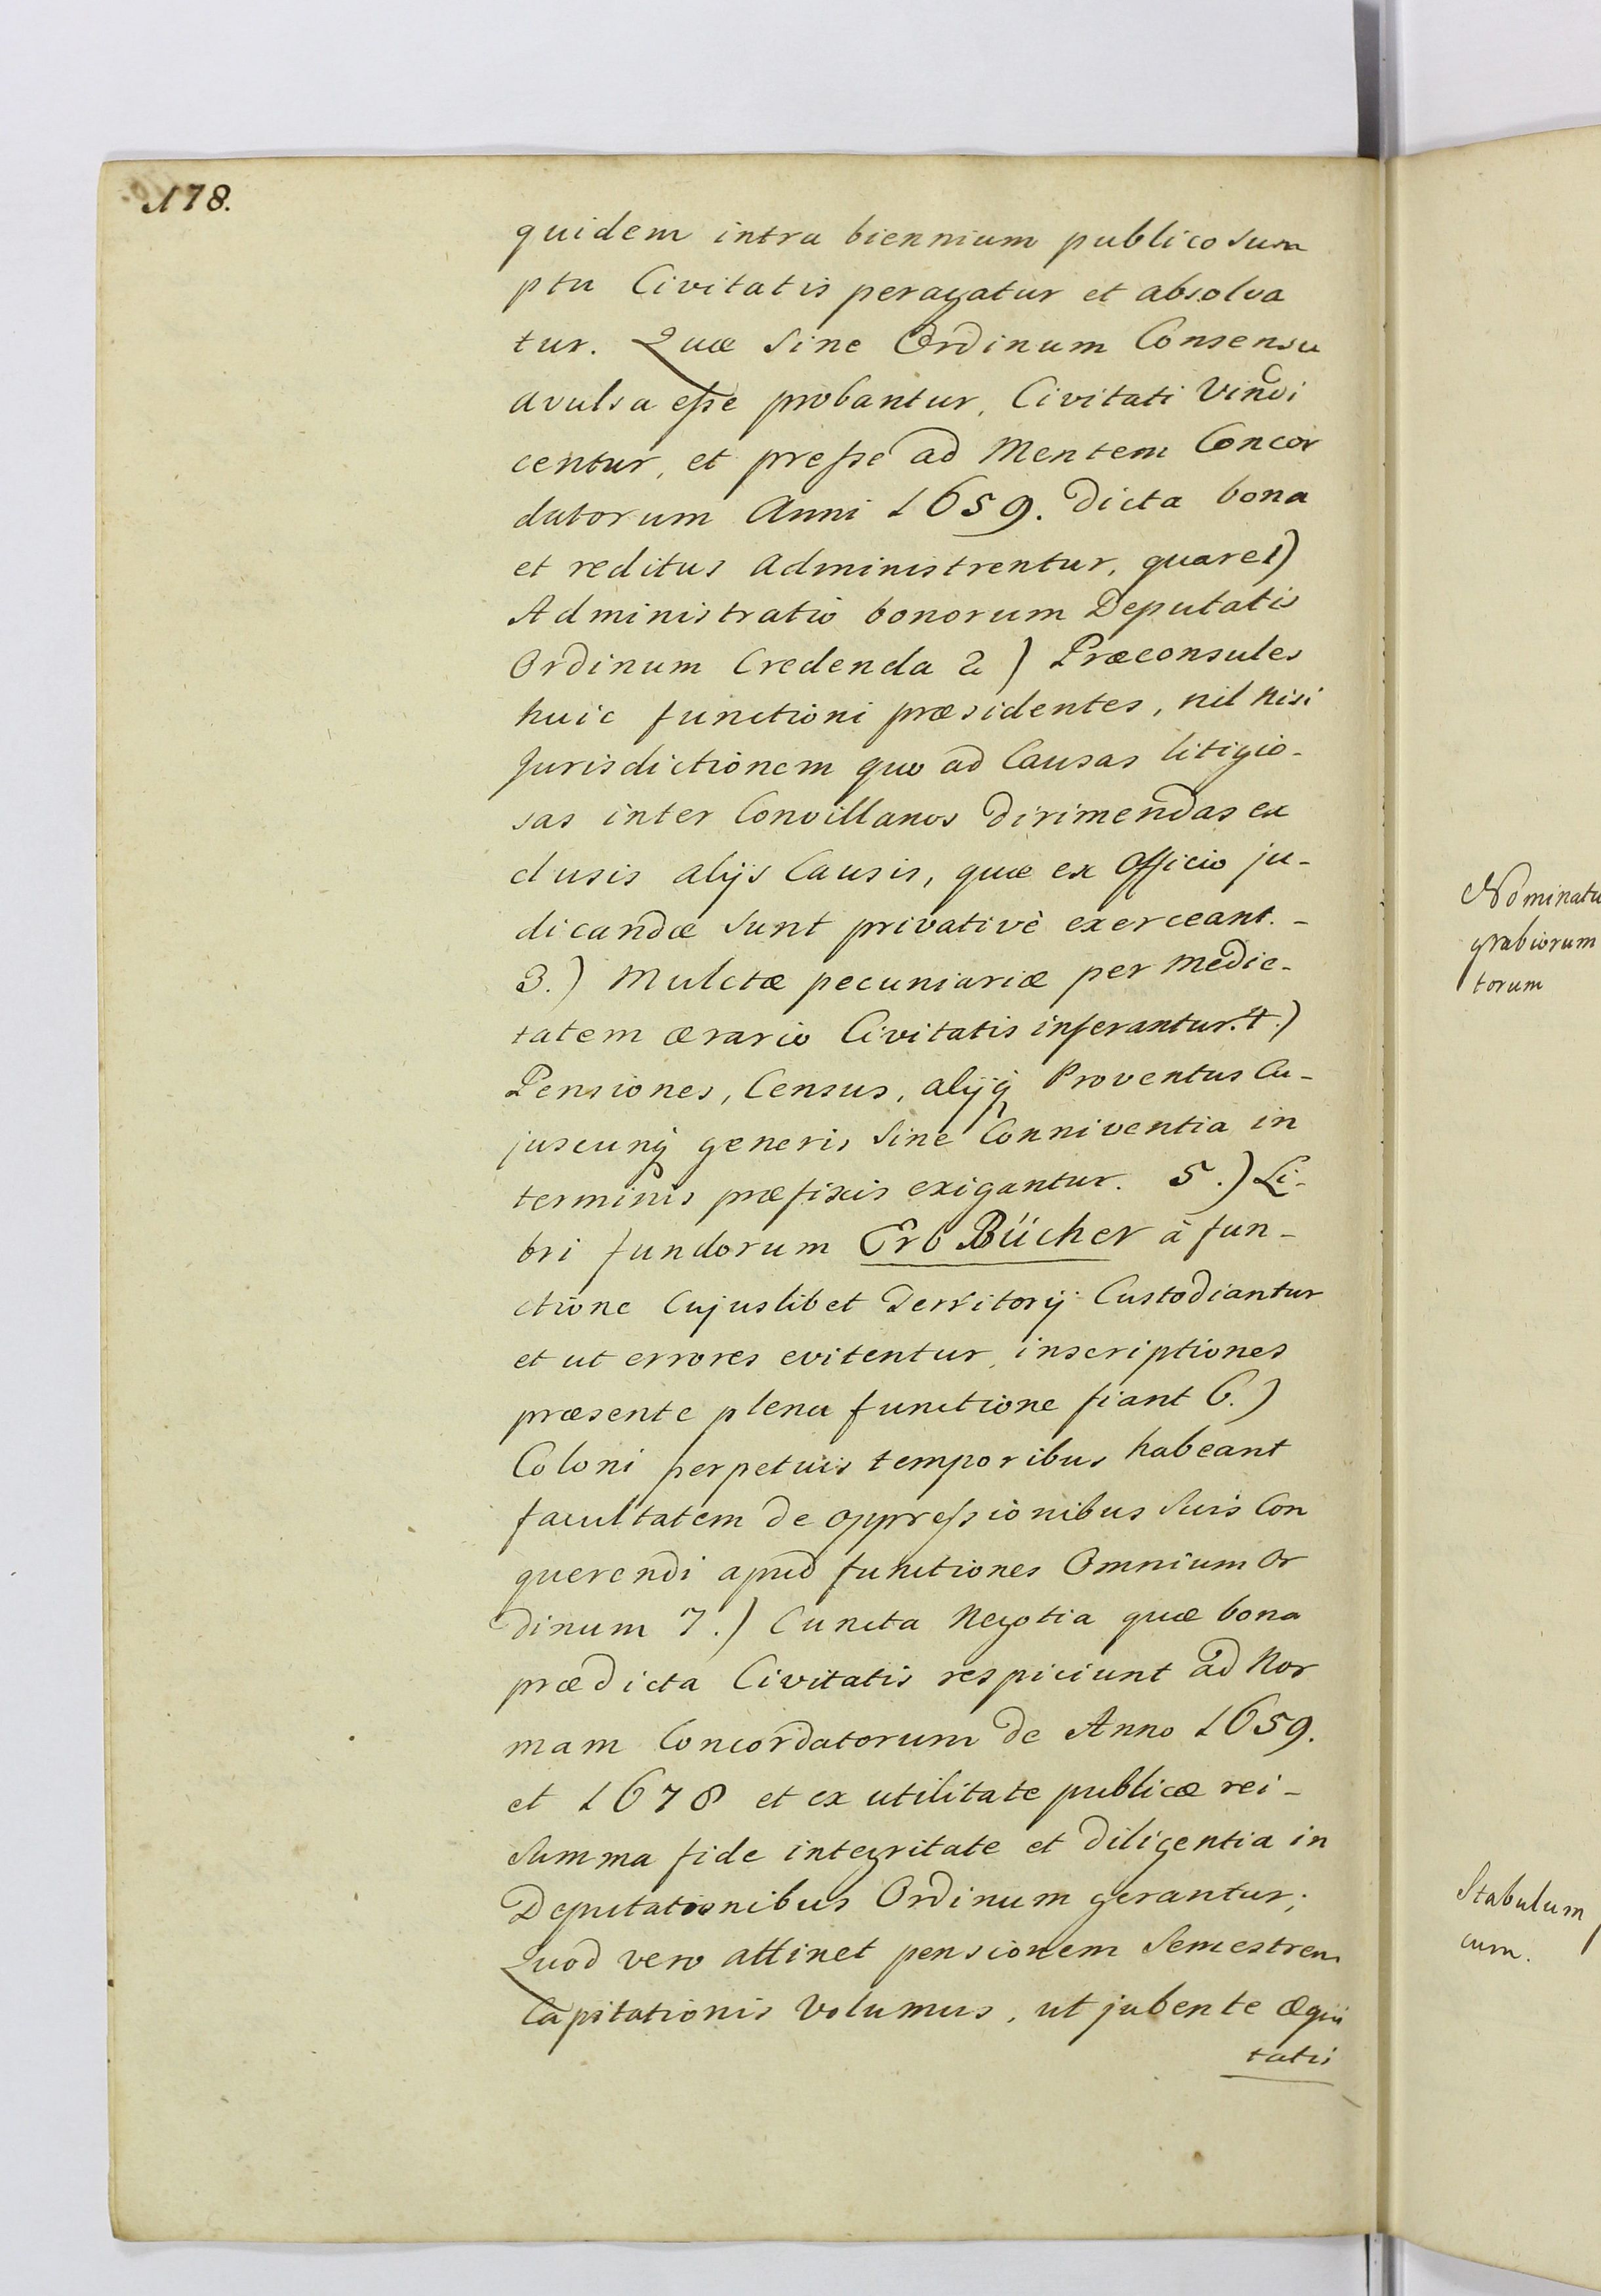 178.
quidem intra biennium publico sum
ptu Civitatis peragatur et absolva
tur. Quæ sine Ordinum Consensu
avulsa eſse probantur, Civitati Vindi
centur, et preſse ad Mentem Concor
datorum Anni 1659. dicta bona
et reditus administrentur, quare 1)
Administratio bonorum Deputatis
Ordinum Credenda 2) Præconsules
huic functioni præsidentes, nil nisi
Jurisdictionem quo ad Causas litigio-
sas inter Convillanos dirimendas ex
clusis alijs Causis, quæ ex Officio ju-
dicandæ sunt privativè exerceant. -
3.) Mulctæ pecuniariæ per medie-
tatem ærario Civitatis inferantur. 4.)
Pensiones, Census, alijq Proventus Cu-
juscunq generis sine Conniventia in
terminis præfixis exigantur. 5.) Li-
bri fundorum Erb Bücher à fun-
ctione Cujuslibet Territorij Custodiantur
et ut errores evitentur, inscriptiones
præsente plena functione fiant 6.)
Coloni perpetuis temporibus habeant
facultatem de oppreſsionibus suis Con
querendi apud functiones Omnium Or
dinum 7.) Cuncta Negotia quæ bona
prædicta Civitatis respiciunt ad Nor
mam Concordatorum de Anno 1659.
et 1678 et ex utilitate publicæ rei -
summa fide integritate et diligentia in
Deputationibus Ordinum gerantur;
Quod vero attinet pensionem Semestrem
Capitationis Volumus, ut jubente æqui
tatis
Nominatu
grabiorum
torum
Stabulum
cum.